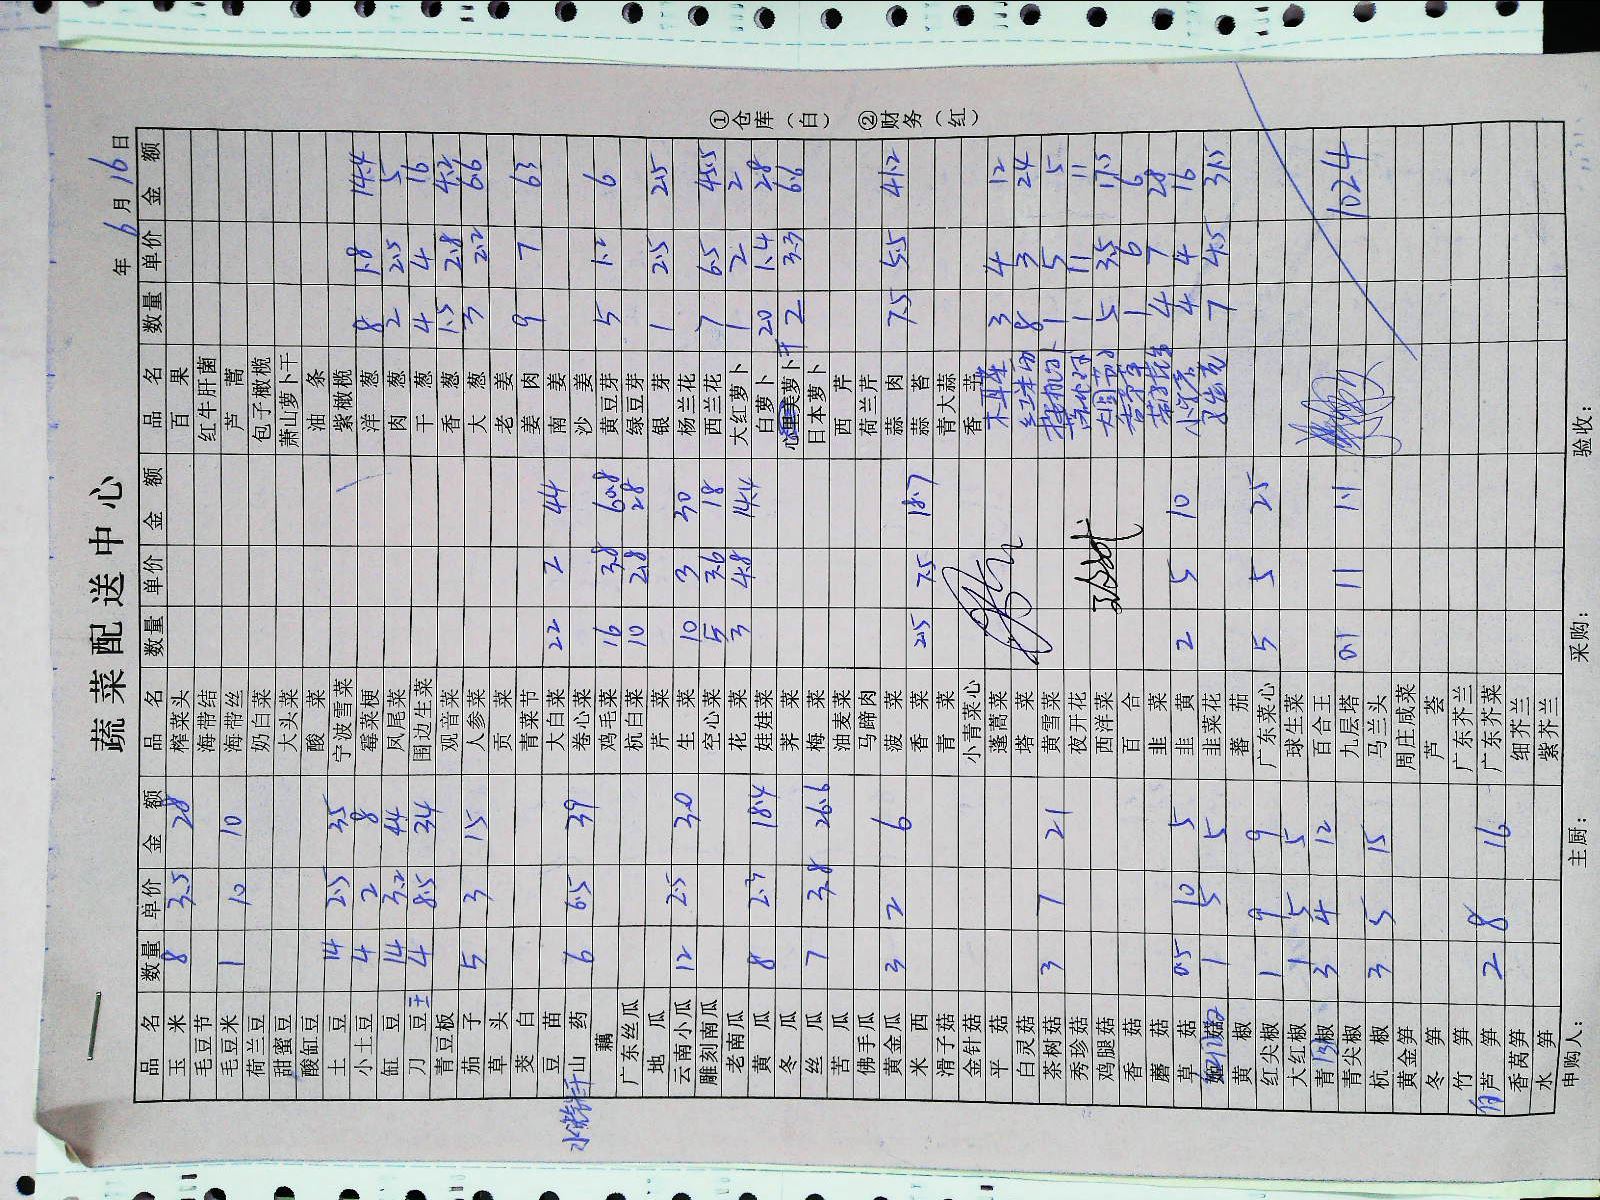 蔬菜配送中心
年 6月 16日
品名 数量 单价 金额 品名 数量 单价 金额 品名 数量 单价 金额
玉米 8 3.5 28 榨菜头 百果
毛豆节 海带结 红牛肝菌
毛豆米 1 10 10 海带丝 芦蒿
荷兰豆 奶白菜 包子橄榄
甜蜜豆 大头菜 萧山萝卜干
酸缸豆 酸菜 油条
土豆 14 2.5 35 宁波雪菜 紫橄榄
小土豆 4 2 8 霉菜梗 洋葱 8 1.8 14.4
缸豆 14 3.2 44 凤尾菜 肉葱 2 2.5 5
刀豆 4 8.5 34 围边生菜 干葱 4 4 16
青豆板 观音菜 香葱 1.5 2.8 4.2
茄子 5 3 15 人参菜 大葱 3 2.2 6.6
草头 贡菜 老姜
茭白 青菜节 姜肉 9 7 63
豆苗 大白菜 22 2 44 南姜
山药 6 6.5 39 卷心菜 沙姜
藕 鸡毛菜 16 3.8 60.8 黄豆芽 5 1.2 6
广东丝瓜 杭白菜 10 2.8 28 绿豆芽
地瓜 芹菜 银芽 1 2.5 2.5
云南小瓜 12 2.5 30 生菜 10 3 30 杨兰花
雕刻南瓜 空心菜 5 3.6 18 西兰花 7 6.5 45.5
老南瓜 花菜 3 4.8 14.4 大红萝卜 1 2 2
黄瓜 8 2.3 18.4 娃娃菜 白萝卜 20 1.4 28
冬瓜 荠菜 心里美萝卜 2 3.3 6.6
丝瓜 7 3.8 26.6 梅菜 日本萝卜
苦瓜 油麦菜 西芹
佛手瓜 马蹄肉 荷兰芹
黄金瓜 3 2 6 菠菜 蒜肉 7.5 5.5 41.2
米西 香菜 2.5 7.5 18.7 蒜苔
滑子菇 青菜 青大蒜
金针菇 小青菜心 香芋
平菇 蓬蒿菜 木耳菜 3 4 12
白灵菇 塔菜 8 3 24
茶树菇 3 7 21 黄雪菜 1 5 5
秀珍菇 夜开花 1 11 11
鸡腿菇 西洋菜 5 3.5 17.5
香菇 百合 1 6 6
蘑菇 韭菜 4 7 28
草菇 0.5 10 5 韭黄 2 5 10 4 4 16
1 5 5 韭菜花 7 4.5 31.5
黄椒 蕃茄
红尖椒 1 9 9 广东菜心 5 5 25
大红椒 1 5 5 球生菜
青椒 3 4 12 百合王
青尖椒 九层塔 0.1 11 1.1 1024
杭椒 3 5 15 马兰头
黄金笋 周庄咸菜
冬笋 芦荟
竹笋 广东芥兰
芦笋 2 8 16 广东芥菜
香莴笋 细芥兰
水笋 紫芥兰
申购人: 主厨: 采购: 验收:
①仓库（白） ②财务（红）